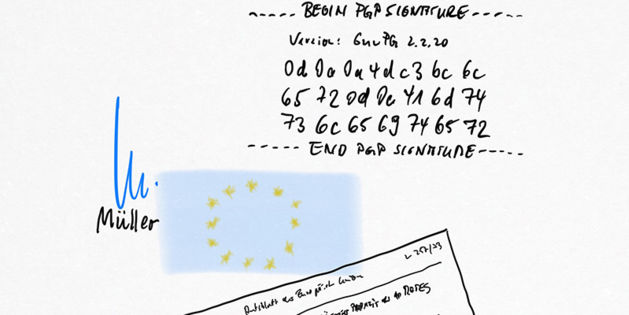 ----- BEGIN PGP SIGNATURE -----
Version: GnuPG 2.2.20
0d 0a 0a 4d c3 bc 6c
65 72 0d 0a 41 6d 74
73 6c 65 69 74 65 72
----- END PGP SIGNATURE -----
Müller
L 257/23
Amtsblatt der Europäischen Union